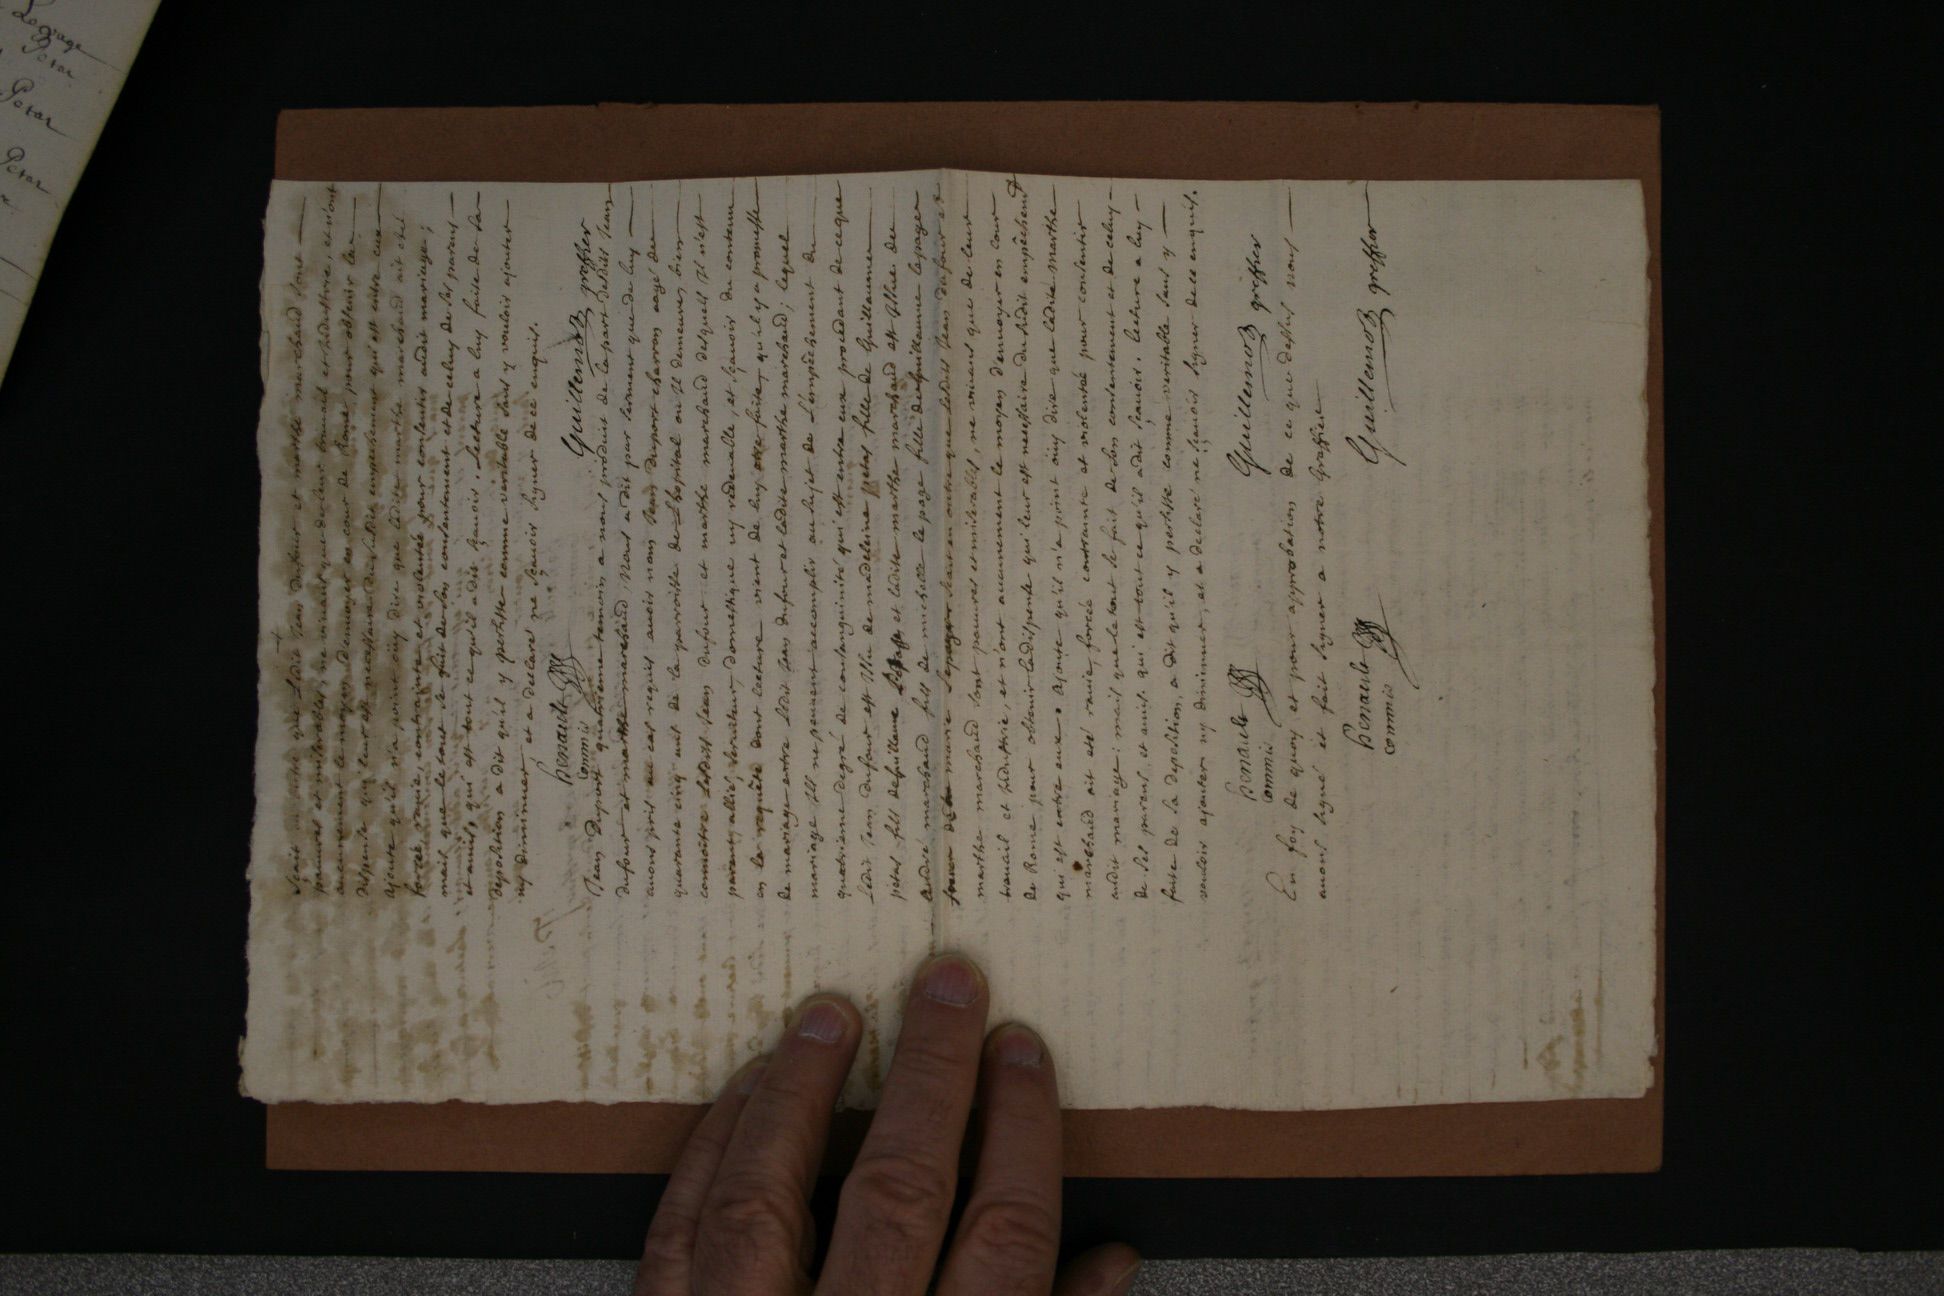 Lepage
Petar
Petar
Petar
Scait en outre que Ledit Jean dufour et marthe marchand sont
pauvres et miserables, ne vivant que de leur travail et industrie, et n'ont
aucunement le moyen d'envoyer en cour de Rome pour obtenir la
dispense qui leur est necessaire du susdit empeschement qui est entre eux
ajoute qu'il n'a point oüy dire que ladite marthe marchand ait eté
forcée, ravie, contrainte et violentée pour consentir audit mariage;
mais que le tout se fait de son consentement et de celuy de ses parens
et amis, qui est tout ce qu'il a dit sçavoir. Lecture a luy faite de sa
deposition a dit qu'il y persiste comme veritable sans y vouloir ajouter
ny diminuer et a declaré ne sçavoir signer de ce enquis.
henault Guillemot greffier
commis
Jean Duport quatrieme temoin a nous produit de la part desdits Jean
dufour et marthe marchand, nous a dit par serment que de luy
avons pris au cas requis avoir nom Jean duport charron aagé de
quarante cinq ans de la parroisse de Lhopital ou Il demeure, bien
connoitre lesdits Jean dufour et marthe marchand desquels Il n'est
parent, allié, serviteur, domestique ny redevable, et sçavoir du contenu
en la requête dont lecture vient de luy etre faite, qu'il y a promesse
de mariage entre ledit Jean dufour et ladite marthe marchand; lequel
mariage Ils ne peuvent accomplir au sujet de L'empêchement du
quatrieme degré de consanguinité qui est entre eux procedant de ce que
Ledit Jean dufour est Issu de madeleine petas fille de Guillaume
petas fils de guillaume et ladite marthe marchand est Issue de
André marchand fils de michelle le page fille de guillaume lepage
marie Lepage Scait en outre que ledits Jean dufour et
marthe marchand sont pauvres et miserables, ne vivant que de leur
travail et industrie, et n'ont aucunement le moyen d'envoyer en cour
de Rome pour obtenir la dispense qui leur est necessaire du susdit empêchement
qui est entre eux. Ajoute qu'il n'a point oüy dire que ladite marthe
marchand ait eté ravie, forcée contrainte et violentée pour consentir
audit mariage; mais que le tout se fait de son consentement et de celuy
de ses parens, et amis. qui est tout ce qu'il a dit sçavoir. Lecture a luy
faite de sa deposition, a dit qu'il y persiste comme veritable sans y
vouloir ajouter ny diminuer, et a declaré ne sçavoir signer de ce enquis.
henault Guillemot greffier
commis
En foy de quoy et pour approbation de ce que dessus nous
avons signé et fait signer a notre Greffier
henault Guillemot greffier
commis